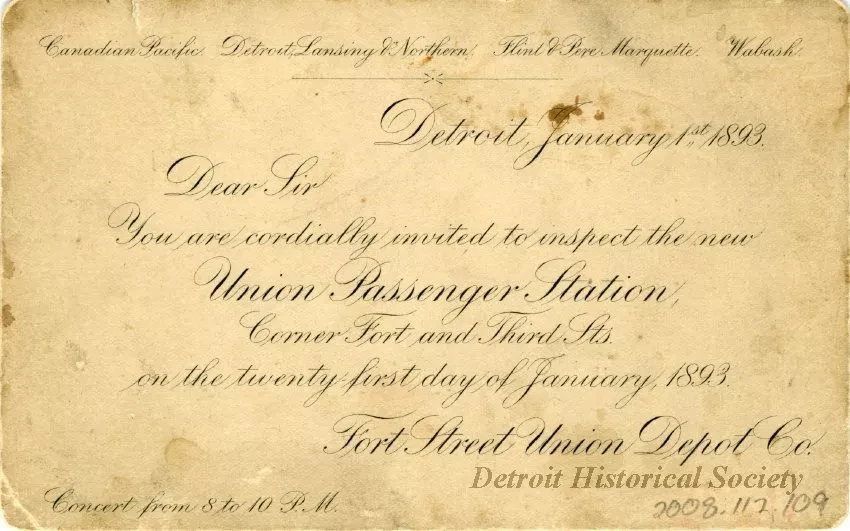 Canadian Pacific. Detroit, Lansing & Northern. Flint & Pere Marquette. Wabash.
Detroit, January 1st, 1893.
Dear Sir
You are cordially invited to inspect the new
Union Passenger Station,
Corner Fort and Third Sts.
on the twenty-first day of January, 1893.
Fort Street Union Depot Co.
Detroit Historical Society
Concert from 8 to 10 P.M.
2008.112.109